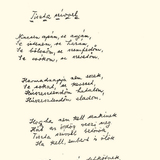 Tiszta szívvel
Nincsen apám, se anyám,
se istenem, se hazám,
se bölcsőm, se szemfedőm,
se csókom, se szeretőm.
Harmadnapja nem eszek,
se sokat, se keveset.
Húsz esztendőm hatalom,
húsz esztendőm eladom.
Hogyha nem kell senkinek,
hát az ördög veszi meg.
Tiszta szívvel betörök,
ha kell, embert is ölök.